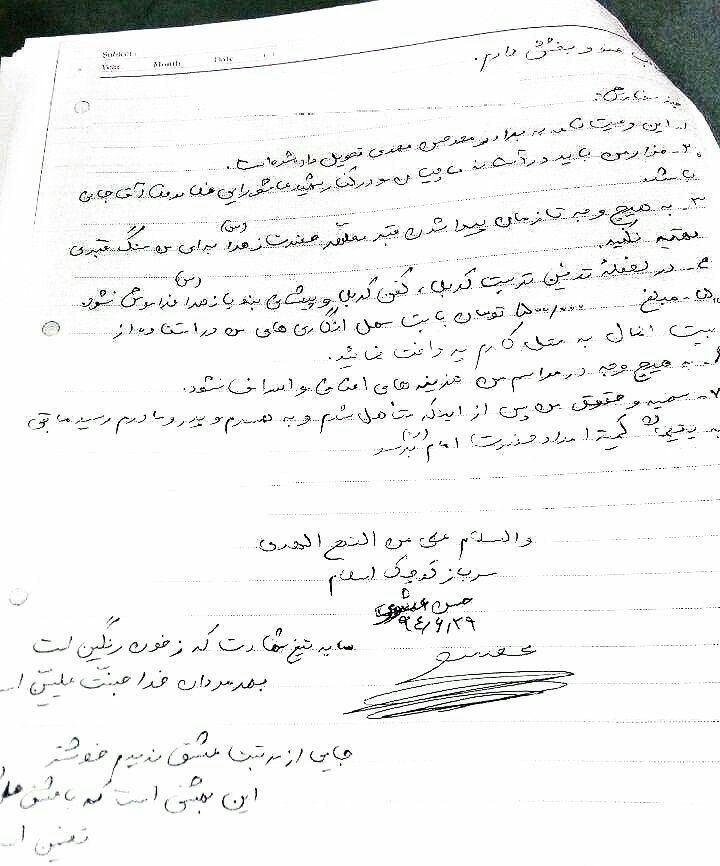 Subject:
Year Month Date
و بخشش دارم.
چند سفارش:
۱. این وصیت نامه به برادر تحویل داده شده است.
۲- مزار من باید در آستانه و در کنار شهید عاشورایی جای
باشد.
۳- به هیچ وجه تا زمان پیدا شدن قبر حضرت زهرا (س) برای من سنگ قبری
تهیه نکنید.
۴- در لحظهٔ تدفین تربت کربلا، کفن کربلا و پیشانی بند یا زهرا (س) فراموش نشود
۵- مبلغ ۵۰۰/۰۰۰ تومان بابت سهل انگاری های من در استفاده از
بیت المال به محل کارم پرداخت نمائید.
۶- به هیچ وجه در مراسم من هزینه های اضافی و اسراف نشود.
۷- سهمیه و حقوق من پس از اینکه متأهل شدم و به همسرم و پدر و مادرم رسید مابقی
به یتیمان کمیتهٔ امداد حضرت امام (ره) برسد
والسلام علی من التبع الهدی
سرباز کوچک اسلام
حسن
۹۴/۶/۲۹
سایه تیغ شهادت که ز خون رنگین است
بهر مردان خدا جنّت
جایی از تربت عشق ندیدم خوشتر
این بهشتی است که با عشق